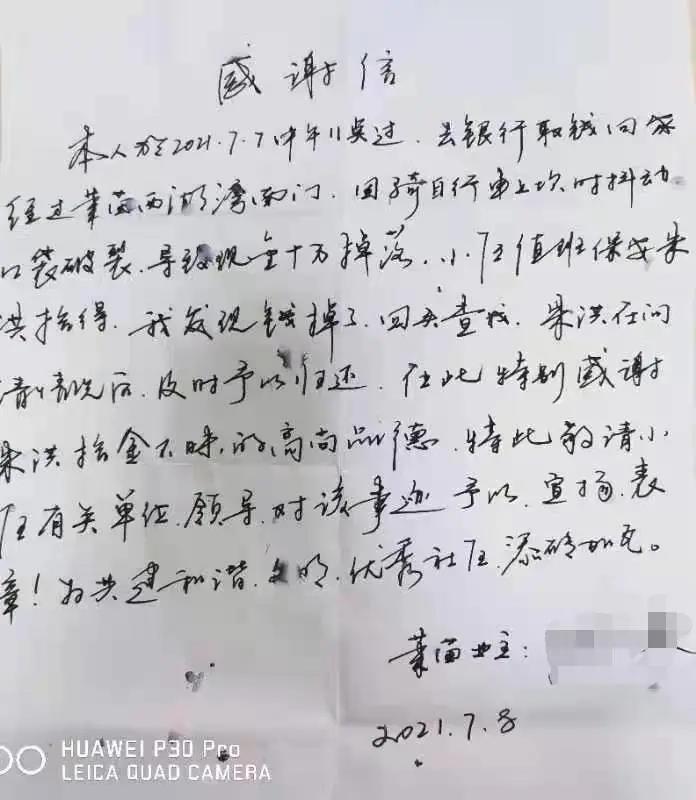 感谢信
本人于2021.7.7中午11点过，去银行取钱回家
经过莱茵西湖湾南门，因骑自行车上坎时抖动
口袋破裂，导致现金十万掉落，小区值班保安朱
洪拾得，我发现钱掉了，回头查找，朱洪在问
清情况后，及时予以归还，在此特别感谢
朱洪拾金不昧，的高尚品德，特此敬请小
区有关单位、领导，对该事迹予以，宣扬、表
章！为共建和谐、文明、优秀社区，添砖加瓦。
莱茵业主：
2021.7.8
HUAWEI P30 Pro
LEICA QUAD CAMERA